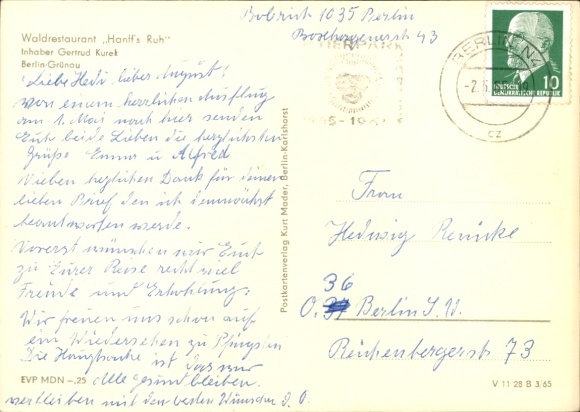 Bobrich 1035 Berlin
Boxhagenerstr 43
Waldrestaurant „Hanff's Ruh"
Inhaber Gertrud Kurek
Berlin-Grünau
Liebe Hedi, lieber August!
Von einem herrlichen Ausflug
am 1. Mai nach hier senden
Euch beide Lieben die herzlichsten
Grüße Emma u Alfred
Vielen herzlichen Dank für deinen
lieben Brief den ich demnächst
beantworten werde.
Vorerst wünschen wir Euch
zu Eurer Reise recht viel
Freude und Erholung.
Wir freuen uns schon auf
ein Wiedersehen zu Pfingsten
Die Hauptsache ist das wir
alle gesund bleiben.
verbleiben mit den besten Wünschen D. O.
EVP MDN –,25
Postkartenverlag Kurt Mader, Berlin-Karlshorst
TIERPARK
BERLIN N4
-2.5.
cz
DEUTSCHE
DEMOKRATISCHE REPUBLIK
10
Frau
Hedwig Reinicke
36
Berlin S.W.
Reichenbergerstr 73
V 11 28 B 3/65